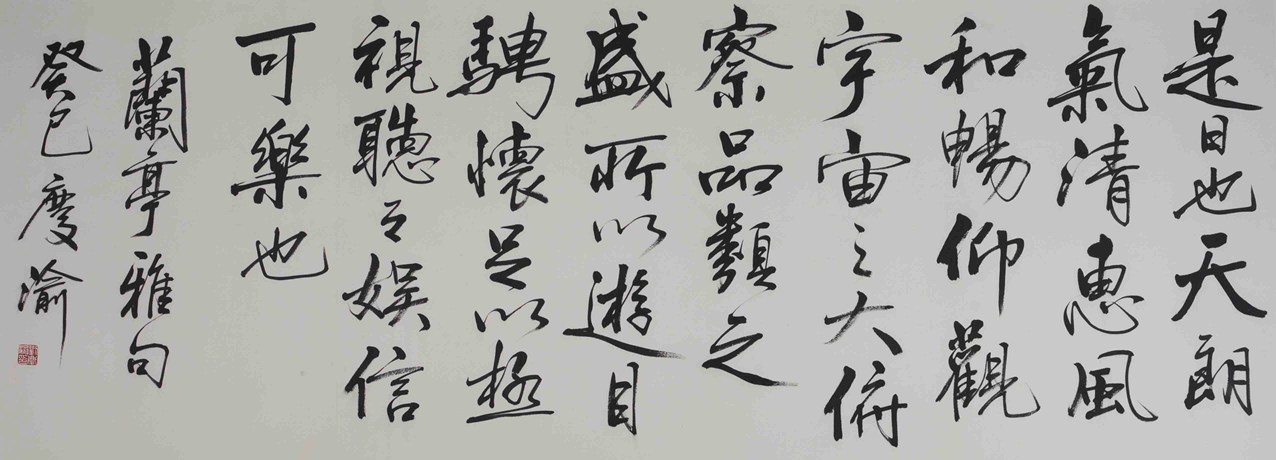 是日也天朗
氣清惠風
和暢仰觀
宇宙之大俯
察品類之
盛所以遊目
騁懷足以極
視聽之娛信
可樂也
蘭亭雅句
癸巳 慶渝